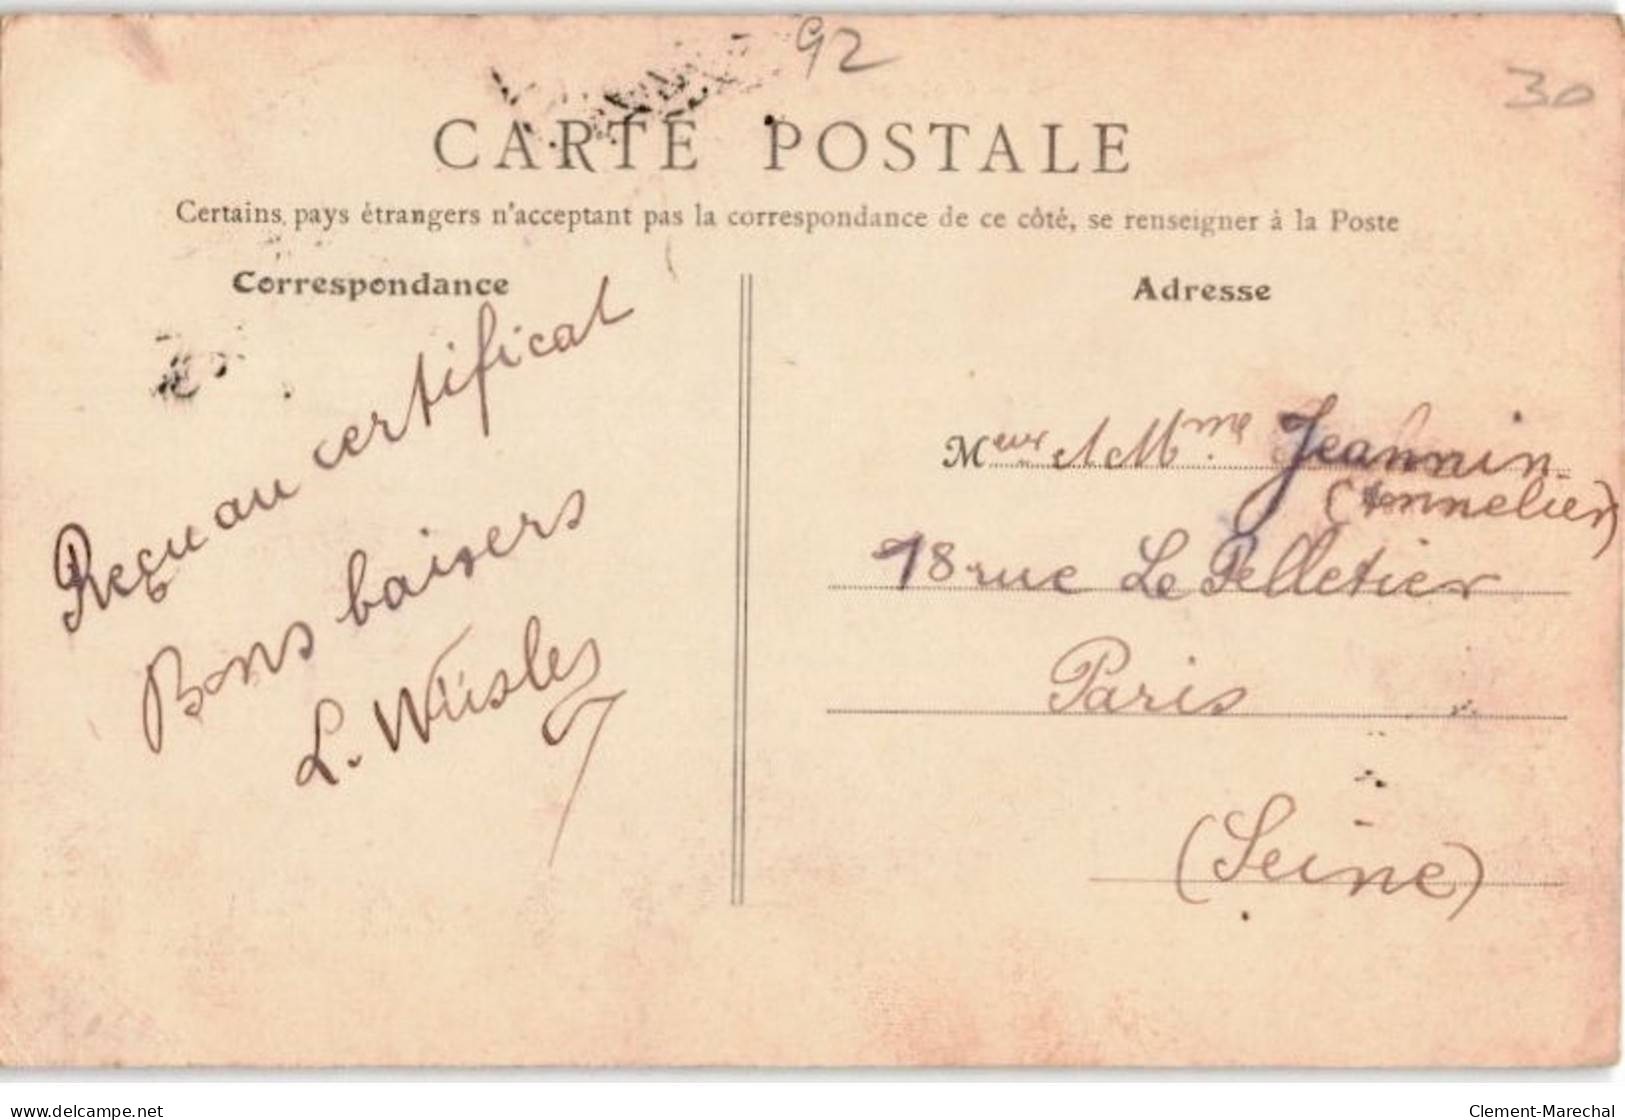 92
30
CARTE POSTALE
Certains pays étrangers n'acceptant pas la correspondance de ce côté, se renseigner à la Poste
Correspondance
Reçu au certificat
Bons baisers
L.
Adresse
Meur & Mme Jeannin
(tonnelier)
18 rue Le Pelletier
Paris
(Seine)
www.delcampe.net
Clement-Marechal